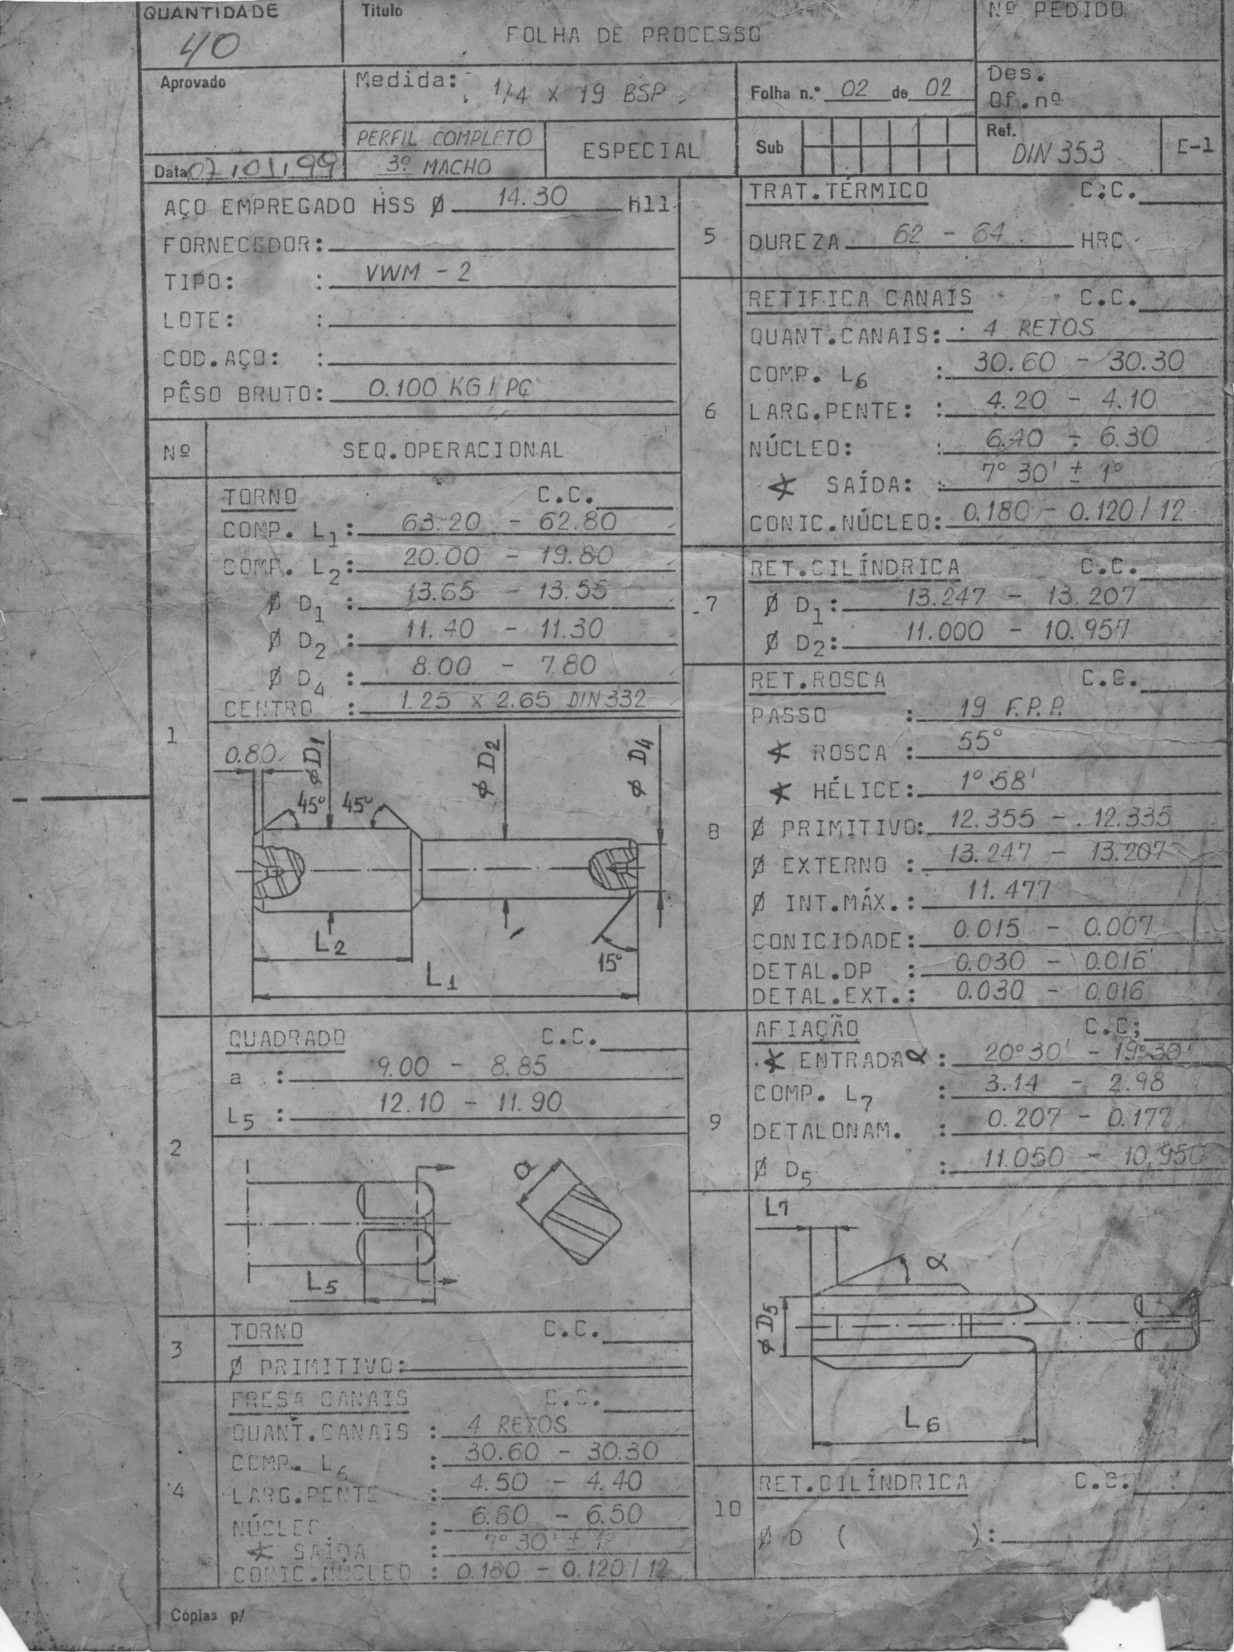 QUANTIDADE
40
Título
FOLHA DE PROCESSO
Nº PEDIDO
Aprovado
Medida: 1/4 x 19 BSP
Folha n.º 02 de 02
Des.
Of.nº
PERFIL COMPLETO
3º MACHO
ESPECIAL
Sub
Ref.
DIN 353
E-1
Data 07/01/99
AÇO EMPREGADO HSS Ø 14.30 h11
FORNECEDOR:
TIPO: : VWM - 2
LOTE: :
COD.AÇO: :
PÊSO BRUTO: 0.100 KG / PÇ
Nº
SEQ.OPERACIONAL
1
TORNO C.C.
COMP. L1: 63.20 - 62.80
COMP. L2: 20.00 - 19.80
Ø D1 : 13.65 - 13.55
Ø D2 : 11.40 - 11.30
Ø D4 : 8.00 - 7.80
CENTRO : 1.25 x 2.65 DIN 332
0.80
Ø D1
Ø D2
Ø D4
45º 45º
L2
15º
L1
2
QUADRADO C.C.
a : 9.00 - 8.85
L5 : 12.10 - 11.90
a
L5
3
TORNO C.C.
Ø PRIMITIVO:
4
FRESA CANAIS C.C.
QUANT.CANAIS : 4 RETOS
COMP. L6 : 30.60 - 30.30
LARG.PENTE : 4.50 - 4.40
NÚCLEO : 6.60 - 6.50
∢ SAÍDA : 7º 30' ± 1º
CONIC.NÚCLEO : 0.180 - 0.120 / 12
Cópias p/
5
TRAT.TÉRMICO C.C.
DUREZA 62 - 64 HRC
6
RETIFICA CANAIS C.C.
QUANT.CANAIS: 4 RETOS
COMP. L6 : 30.60 - 30.30
LARG.PENTE: : 4.20 - 4.10
NÚCLEO: : 6.40 - 6.30
∢ SAÍDA: : 7º 30' ± 1º
CONIC.NÚCLEO: 0.180 - 0.120 / 12
7
RET.CILÍNDRICA C.C.
Ø D1: 13.247 - 13.207
Ø D2: 11.000 - 10.957
8
RET.ROSCA C.C.
PASSO : 19 F.P.P.
∢ ROSCA : 55º
∢ HÉLICE: 1º 58'
Ø PRIMITIVO: 12.355 - 12.335
Ø EXTERNO : 13.247 - 13.207
Ø INT.MÁX.: 11.477
CONICIDADE: 0.015 - 0.007
DETAL.DP : 0.030 - 0.016
DETAL.EXT.: 0.030 - 0.016
9
AFIAÇÃO C.C.
∢ ENTRADA α : 20º30' - 19º30'
COMP. L7 : 3.14 - 2.98
DETALONAM. : 0.207 - 0.177
Ø D5 : 11.050 - 10.950
L7
α
Ø D5
L6
10
RET.CILÍNDRICA C.C.
Ø D ( ):